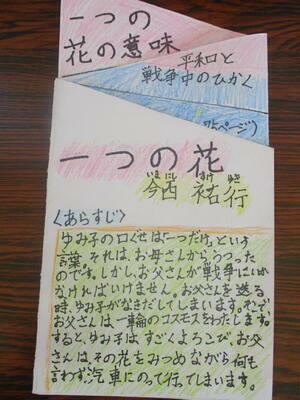 一つの
花の意味
平和と
戦争中のひかく
75ページ)
一つの花
いまにし すけ ゆき
今西 祐行
〈あらすじ〉
ゆみ子の口ぐせは一つだけ。という
言葉。それは、お母さんからうつった
のです。しかし、お父さんが戦争にいか
なければいけません。お父さんを送る
時、ゆみ子がなきだしてしまいます。そこで
お父さんは一輪のコスモスをわたします。
すると、ゆみ子はすごくよろこび、お父
さんは、その花をみつめながら何も
言わず、汽車にのって行ってしまいます。